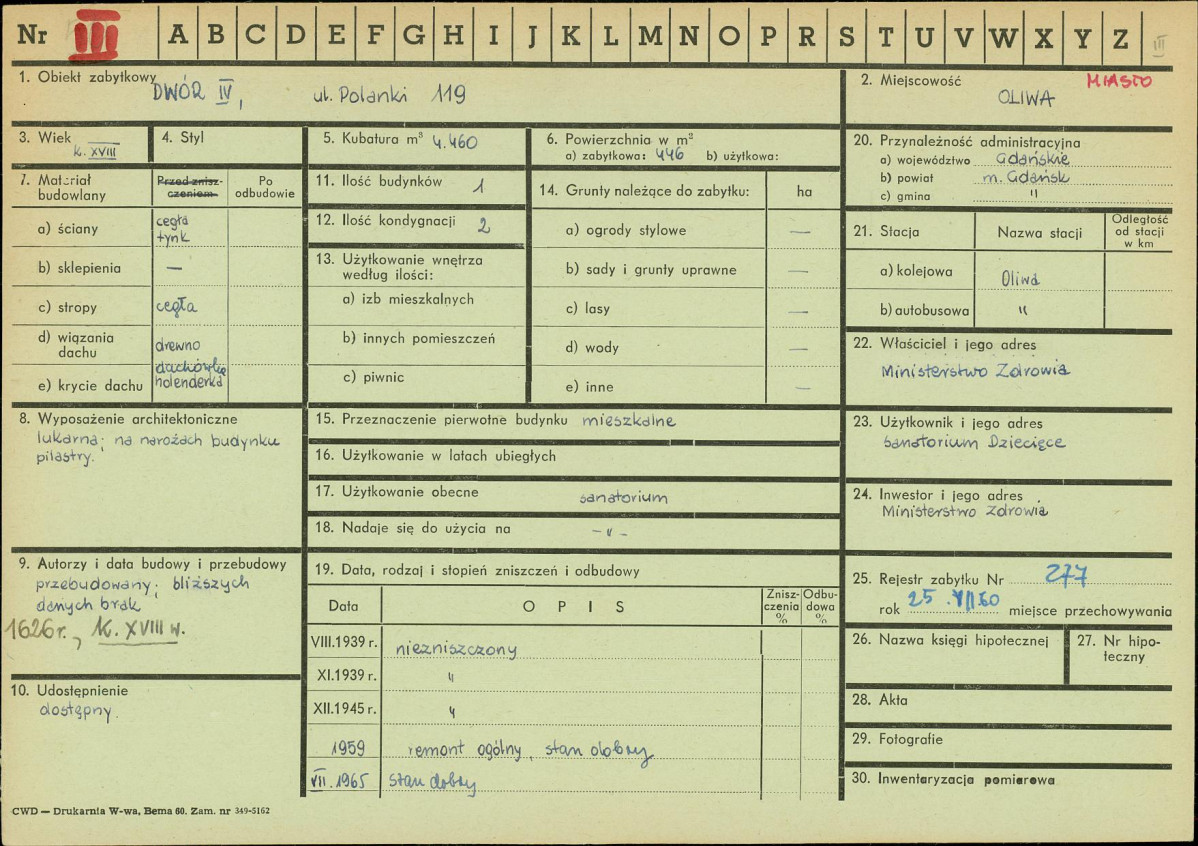 Nr III A B C D E F G H I J K L M N O P R S T U V W X Y Z III
1. Obiekt zabytkowy
DWÓR IV, ul. Polanki 119
2. Miejscowość MIASTO
OLIWA
3. Wiek
k. XVIII
4. Styl
5. Kubatura m³ 4.460
6. Powierzchnia w m²
a) zabytkowa: 446 b) użytkowa:
7. Materiał budowlany
Przed znisz-
czeniem
Po
odbudowie
a) ściany cegła
tynk
b) sklepienia —
c) stropy cegła
d) wiązania
dachu drewno
e) krycie dachu dachówka
holenderka
8. Wyposażenie architektoniczne
lukarna; na narożach budynku
pilastry.
9. Autorzy i data budowy i przebudowy
przebudowany; bliższych
danych brak
1626 r., k. XVIII w.
10. Udostępnienie
dostępny.
11. Ilość budynków 1
12. Ilość kondygnacji 2
13. Użytkowanie wnętrza
według ilości:
a) izb mieszkalnych
b) innych pomieszczeń
c) piwnic
14. Grunty należące do zabytku: ha
a) ogrody stylowe —
b) sady i grunty uprawne —
c) lasy —
d) wody —
e) inne —
15. Przeznaczenie pierwotne budynku mieszkalne
16. Użytkowanie w latach ubiegłych
17. Użytkowanie obecne sanatorium
18. Nadaje się do użycia na – „ –
19. Data, rodzaj i stopień zniszczeń i odbudowy
Data OPIS Znisz-
czenia
%
Odbu-
dowa
%
VIII.1939 r. niezniszczony
XI.1939 r. "
XII.1945 r. "
1959 remont ogólny, stan dobry
VII.1965 stan dobry
20. Przynależność administracyjna
a) województwo Gdańskie
b) powiat m. Gdańsk
c) gmina "
21. Stacja Nazwa stacji Odległość
od stacji
w km
a) kolejowa Oliwa
b) autobusowa "
22. Właściciel i jego adres
Ministerstwo Zdrowia
23. Użytkownik i jego adres
Sanatorium Dziecięce
24. Inwestor i jego adres
Ministerstwo Zdrowia
25. Rejestr zabytku Nr 277
rok 25.VII.60 miejsce przechowywania
26. Nazwa księgi hipotecznej
27. Nr hipo-
teczny
28. Akta
29. Fotografie
30. Inwentaryzacja pomiarowa
CWD — Drukarnia W-wa, Bema 60. Zam. nr 349-5162